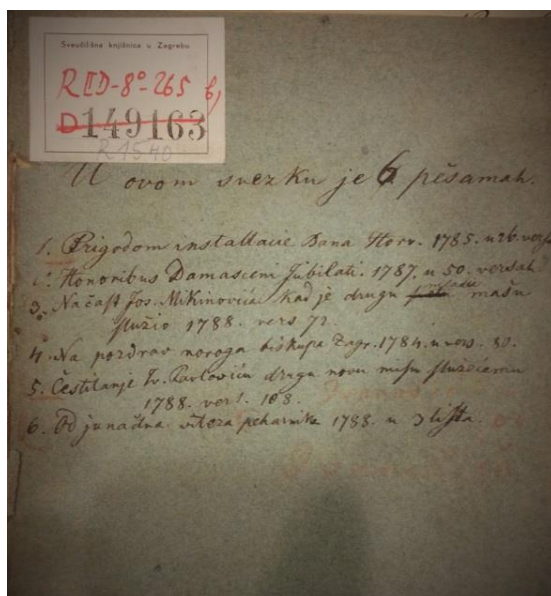 Sveučilišna knjižnica u Zagrebu
RIID-8°-265 b,
D149163
R 1540
U ovom svezku je 6 pěsamah.
1. Prigodom installacie Bana Horv. 1785. u 26. versa
2. Honoribus Damasceni Jubilati. 1787. u 50. versah
3. Na čast Jos. Mikinovića kad je drugu mladu mašu
služio 1788. vers 72.
4. Na pozdrav novoga biskupa Zagr. 1784. u vers. 80.
5. Čestitanje Iv. Pavloviću drugu novu mašu služećemu
1788. vers. 108.
6. Od junačna viteza peharnik 1788. u 3 lista.